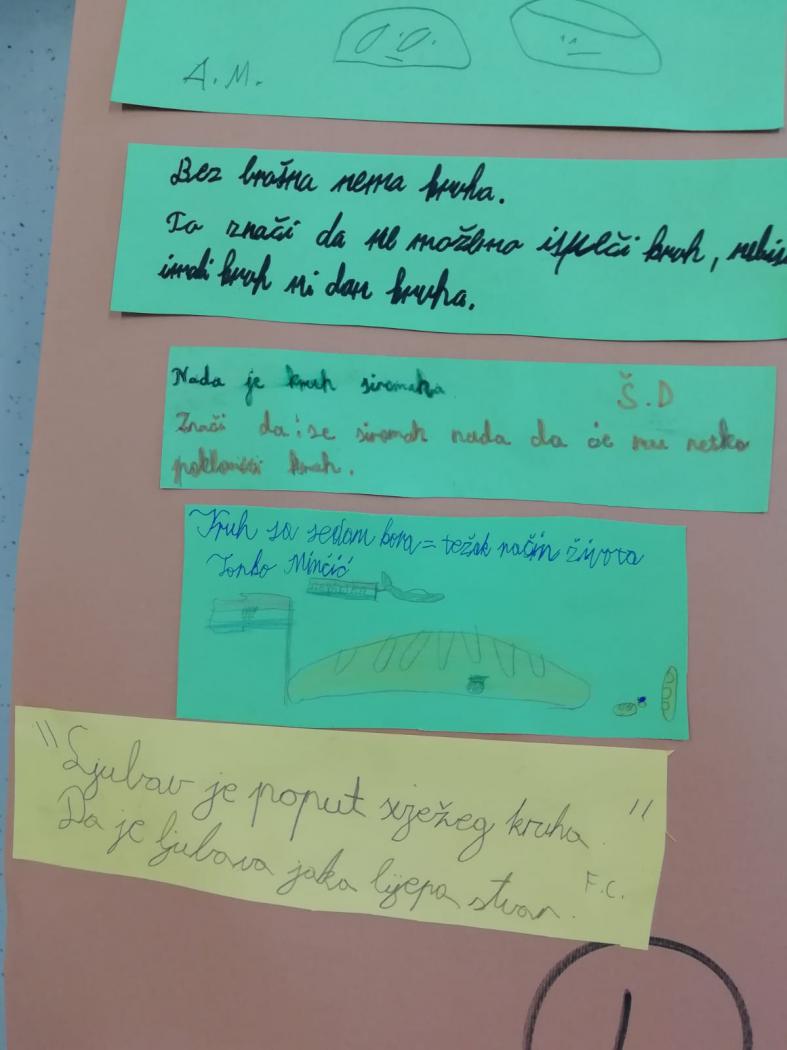 A.M.
Bez brašna nema kruha.
To znači da ne možemo ispeči kruh,
imali kruh ni dan kruha.
Nada je kruh siromaha
Š.D
Znači da se siromah nada da će mu netko
pokloniti kruh.
Kruh sa sedam kora = težak način života
Tonko Minčić
"Ljubav je poput svježeg kruha."
Da je ljubav jaka lijepa stvar.
F.C.